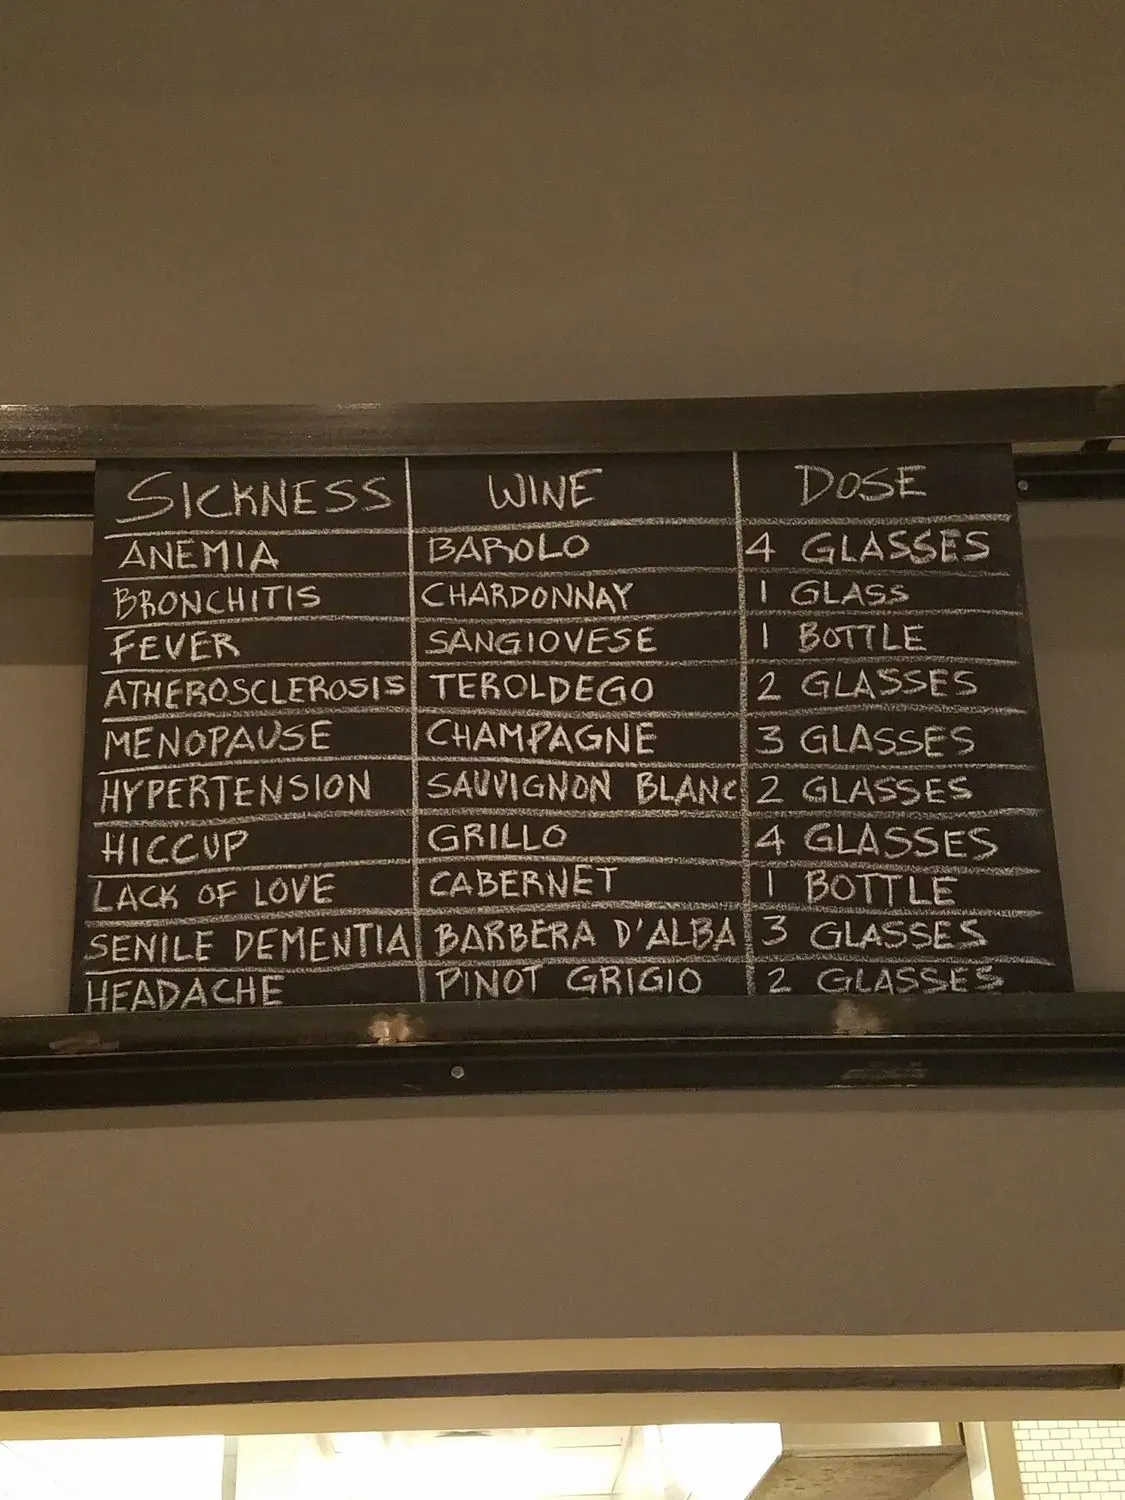 SICKNESS WINE DOSE
ANEMIA BAROLO 4 GLASSES
BRONCHITIS CHARDONNAY 1 GLASS
FEVER SANGIOVESE 1 BOTTLE
ATHEROSCLEROSIS TEROLDEGO 2 GLASSES
MENOPAUSE CHAMPAGNE 3 GLASSES
HYPERTENSION SAUVIGNON BLANC 2 GLASSES
HICCUP GRILLO 4 GLASSES
LACK OF LOVE CABERNET 1 BOTTLE
SENILE DEMENTIA BARBERA D'ALBA 3 GLASSES
HEADACHE PINOT GRIGIO 2 GLASSES